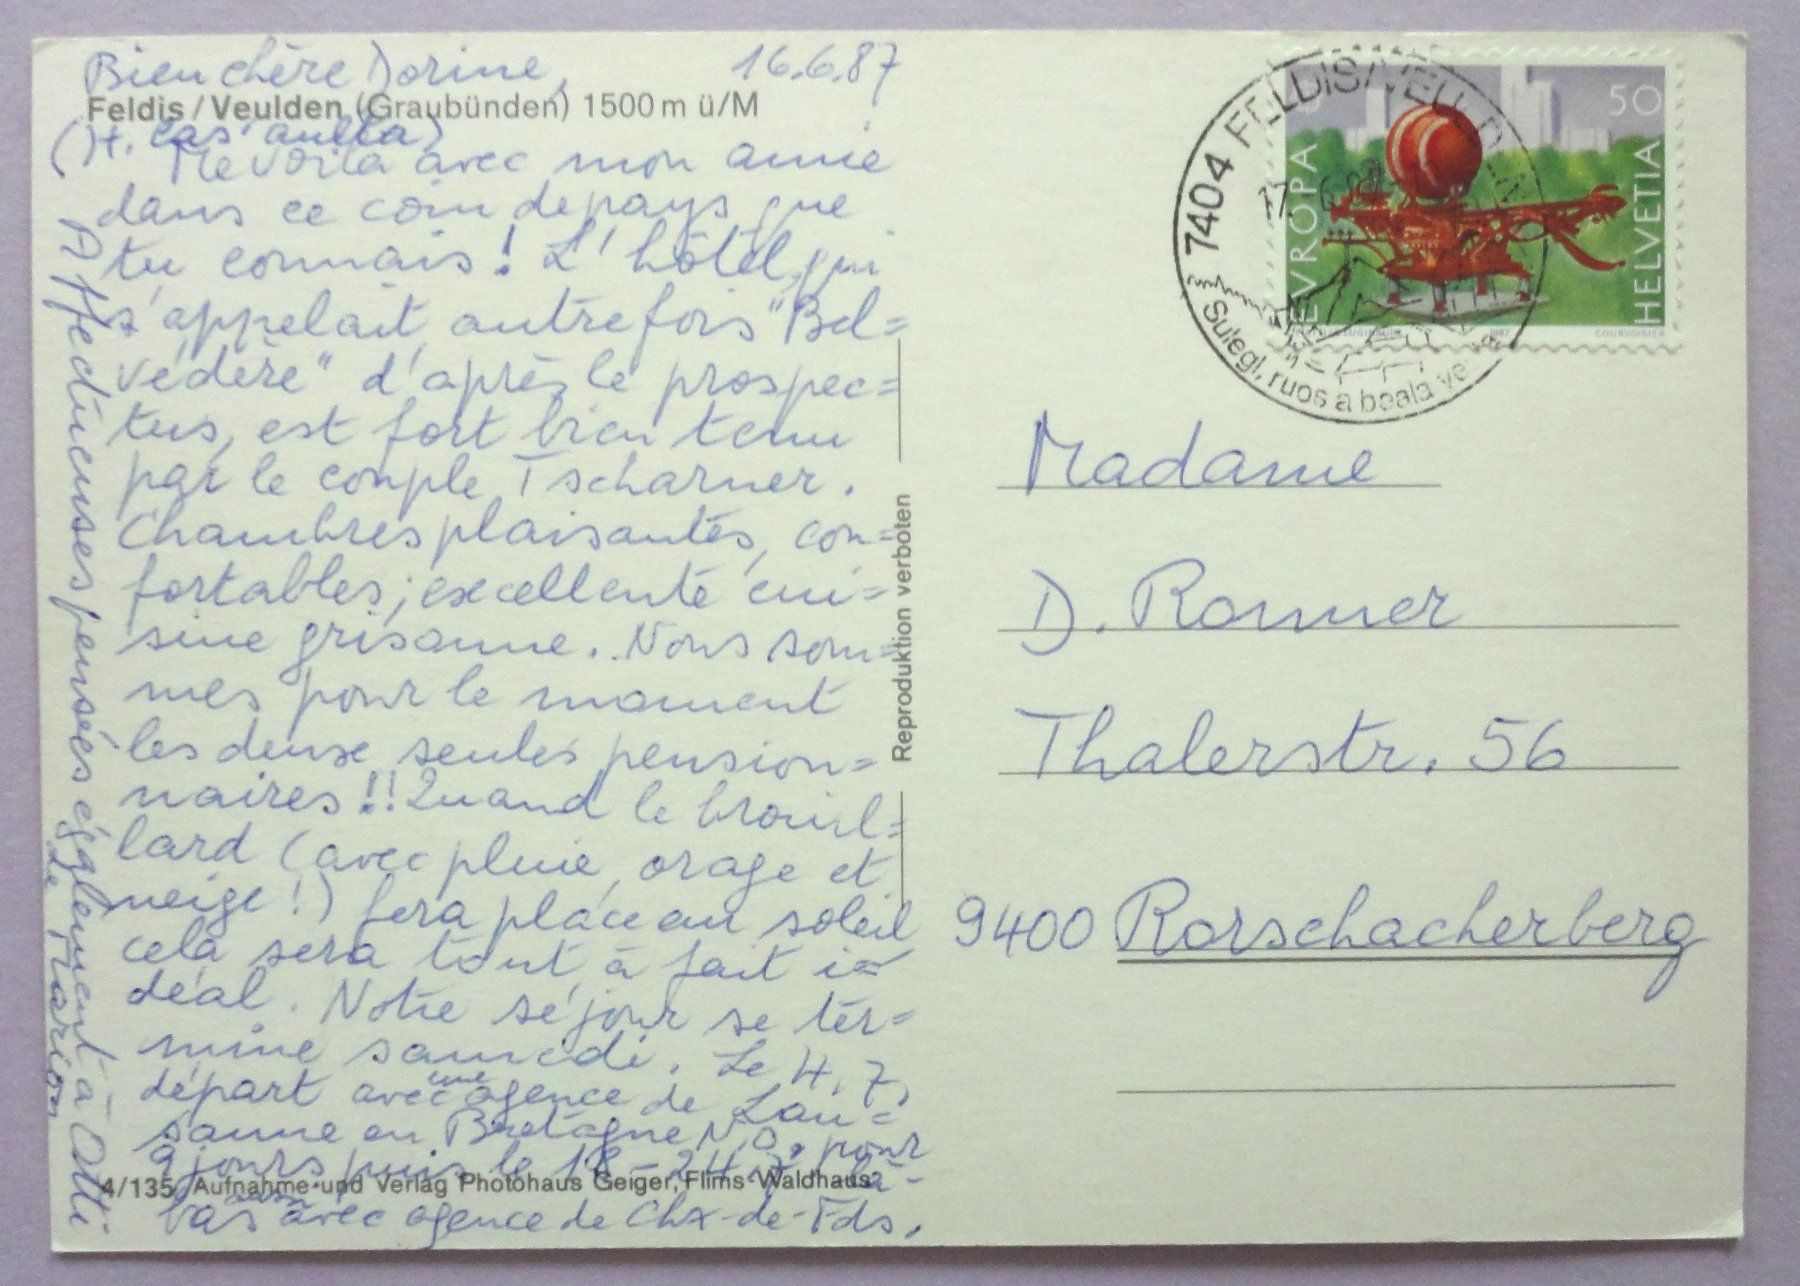 Bien chère Dorine, 16.6.87
Feldis / Veulden (Graubünden) 1500 m ü/M
(H. cas'aulta)
Me voilà avec mon amie
dans ce coin de pays que
tu connais! L'hôtel, qui
s'appelait autrefois "Bel=
védère" d'après le prospec=
tus, est fort bien tenu
par le couple Tscharner.
Chambres plaisantes, con=
fortables; excellente cui=
sine grisonne. Nous som=
mes pour le moment
les deux seules pension=
naires!! Quand le brouil=
lard (avec pluie, orage et
neige!) fera place au soleil
cela sera tout à fait i=
déal. Notre séjour se ter=
mine samedi. Le 4.7,
départ avec une agence de Lau=
sanne en Bretagne N.O. pour
9 jours puis le 18-24.7. là-
4/135 Aufnahme und Verlag Photohaus Geiger, Flims-Waldhaus
bas avec agence de Chx-de-Fds.
Affectueuses pensées également à Otti.
De Marion
Reproduktion verboten
7404 FELDIS/VEULDEN
17. 6.87
Sulegl, ruos a beala
EVROPA
50
HELVETIA
1987
COURVOISIER
Madame
D. Ronner
Thalerstr. 56
9400 Rorschacherberg